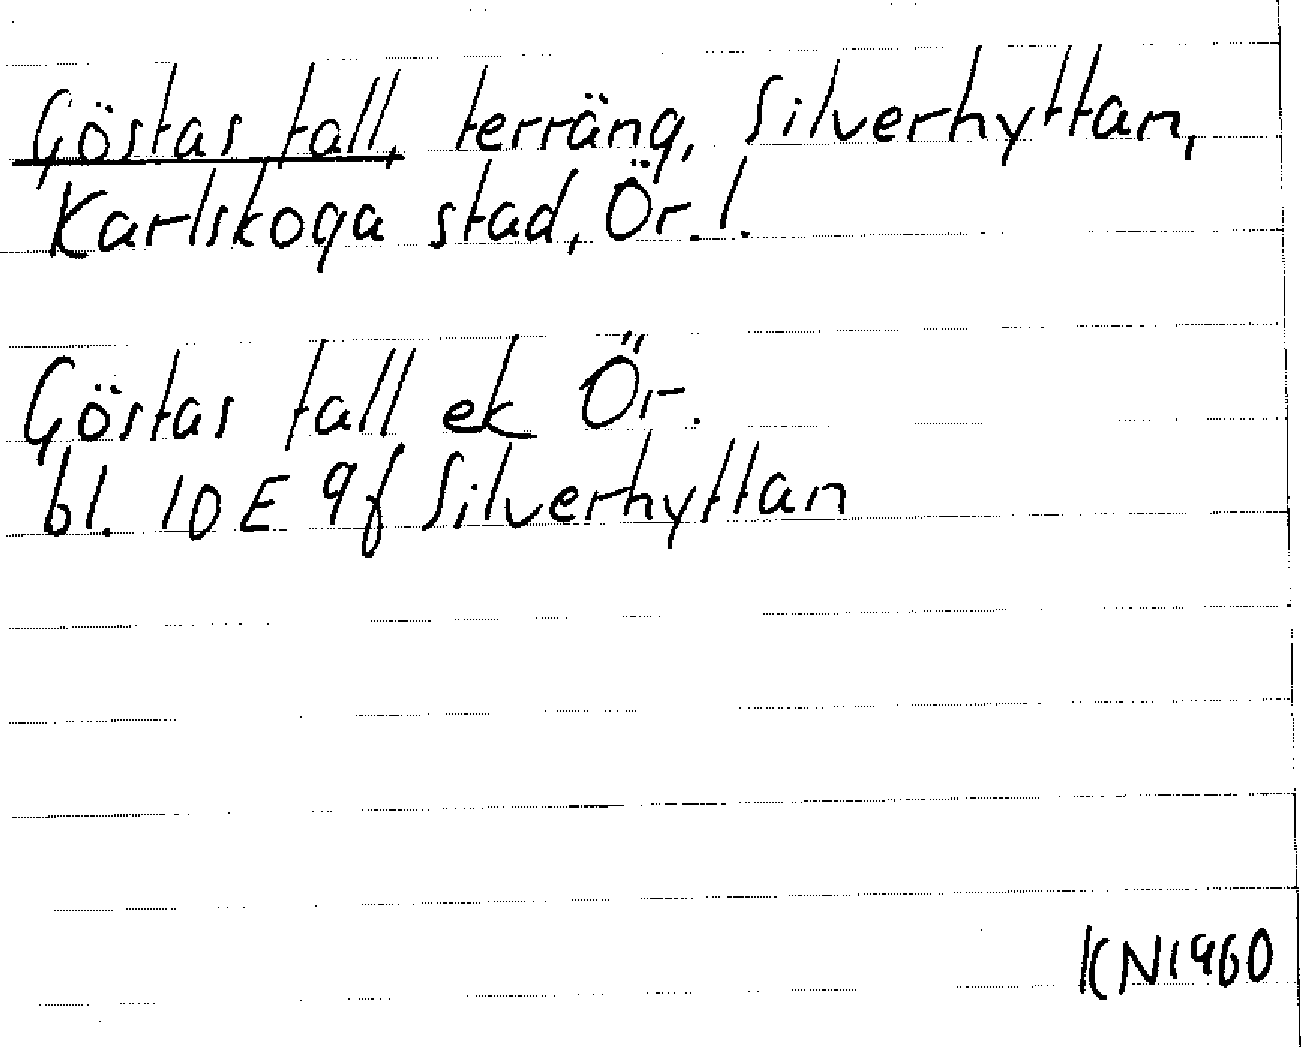 Göstas tall, terräng, Silverhyttan,
Karlskoga stad, Ör. l.
Göstas tall ek Ör.
bl. 10 E 9f Silverhyttan
KN1960